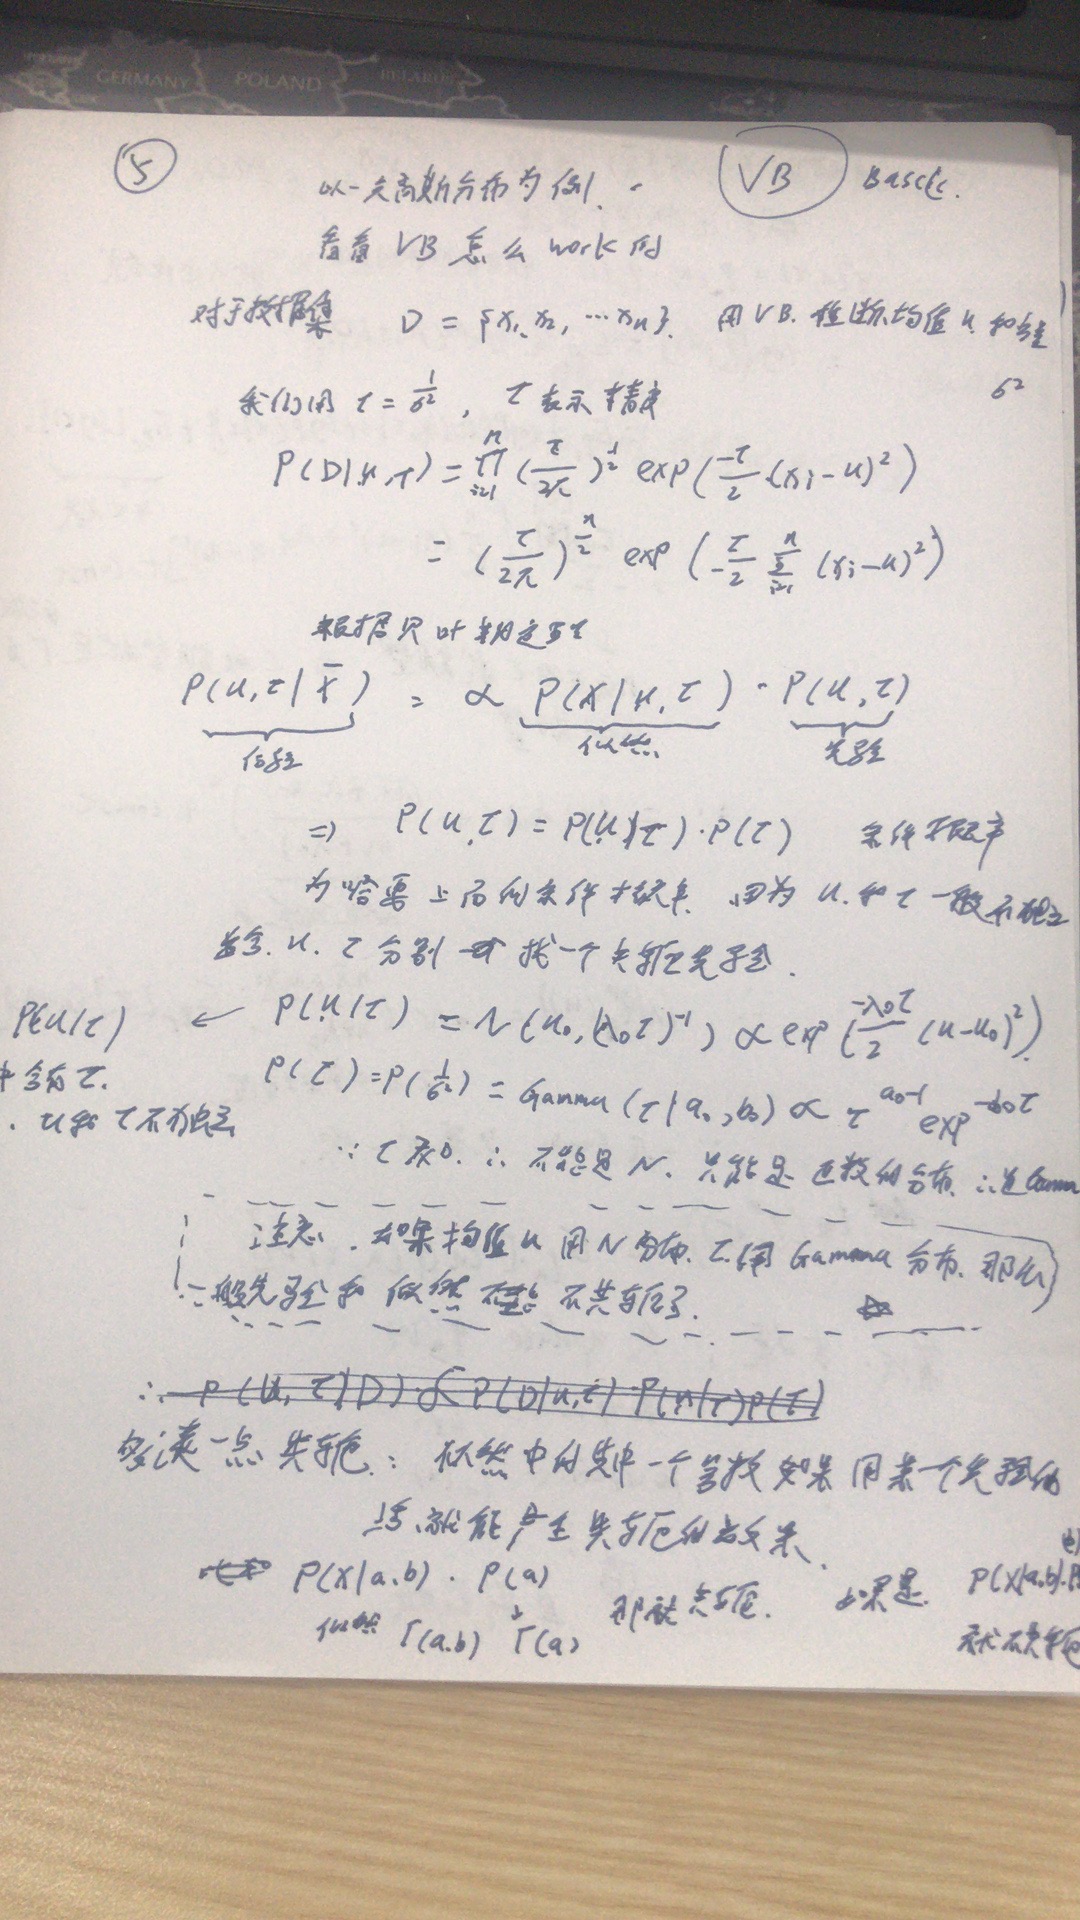 GERMANY POLAND BELARUS
⑤
VB Basic
以一元高斯分布为例.
看看 VB 怎么 work 的
对于数据集 D = {x₁, x₂, … xₙ}. 用 VB. 推断均值 u. 和方差 σ²
我们用 τ = 1/σ² , τ 表示精度
P(D|u,τ) = ∏ᵢ₌₁ⁿ (τ/2π)^(1/2) exp(-τ/2 (xᵢ-u)²)
= (τ/2π)^(n/2) exp(-τ/2 ∑ᵢ₌₁ⁿ (xᵢ-u)²)
根据贝叶斯定理
P(u,τ|x̄) = ∝ P(X|u,τ) · P(u,τ)
后验 似然 先验
⇒ P(u,τ) = P(u|τ)·P(τ) 条件概率
为啥要上面的条件概率. 因为 u. 和 τ 一般不独立
u. τ 分别 找一个共轭先验.
P(u|τ) ← P(u|τ) = N(u₀, (λ₀τ)⁻¹) ∝ exp(-λ₀τ/2 (u-u₀)²)
中含有 τ.
P(τ) = P(1/σ²) = Gamma(τ|a₀,b₀) ∝ τ^(a₀-1) exp^(-b₀τ)
∴ u 和 τ 不独立
∵ τ ∴ 不能是 N. 只能是 正数的分布. ∴选 Gamma
注意. 如果均值 u 用 N 分布. τ 用 Gamma 分布. 那么
一般先验和似然 不共轭了.
∴ P(u,τ|D) ∝ P(D|u,τ) P(u|τ)P(τ)
一点 共轭: 似然中的其中一个参数如果用某一个先验的
话, 就能产生共轭的效果.
P(X|a,b) · P(a) 那就共轭. 如果是 P(X|a,b).P
似然 Γ(a,b) Γ(a) 就不共轭